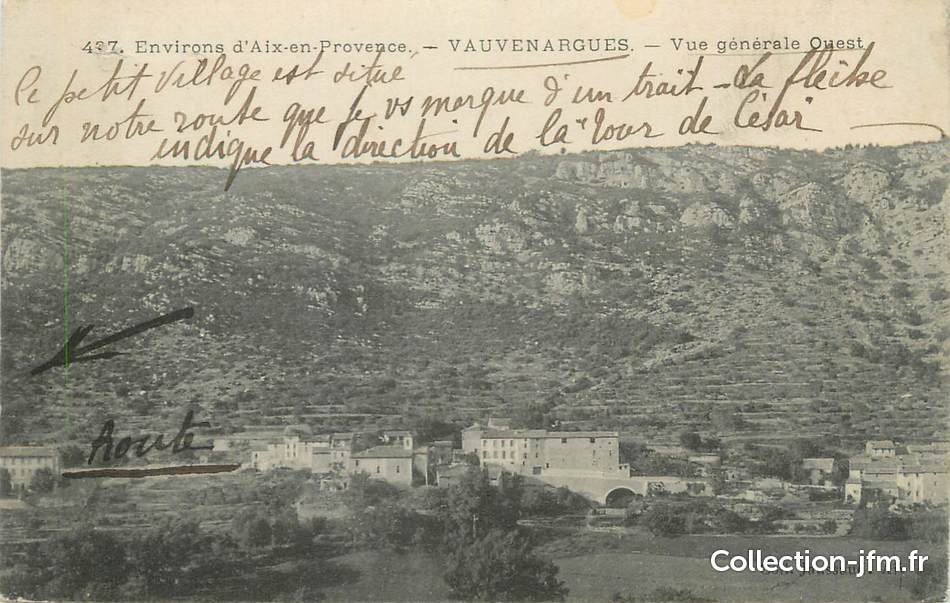 437. Environs d'Aix-en-Provence. — VAUVENARGUES. — Vue générale Ouest
Ce petit village est situé
sur notre route que je vs marque d'un trait - La flèche
indique la direction de la "Tour de César
Route
Collection-jfm.fr